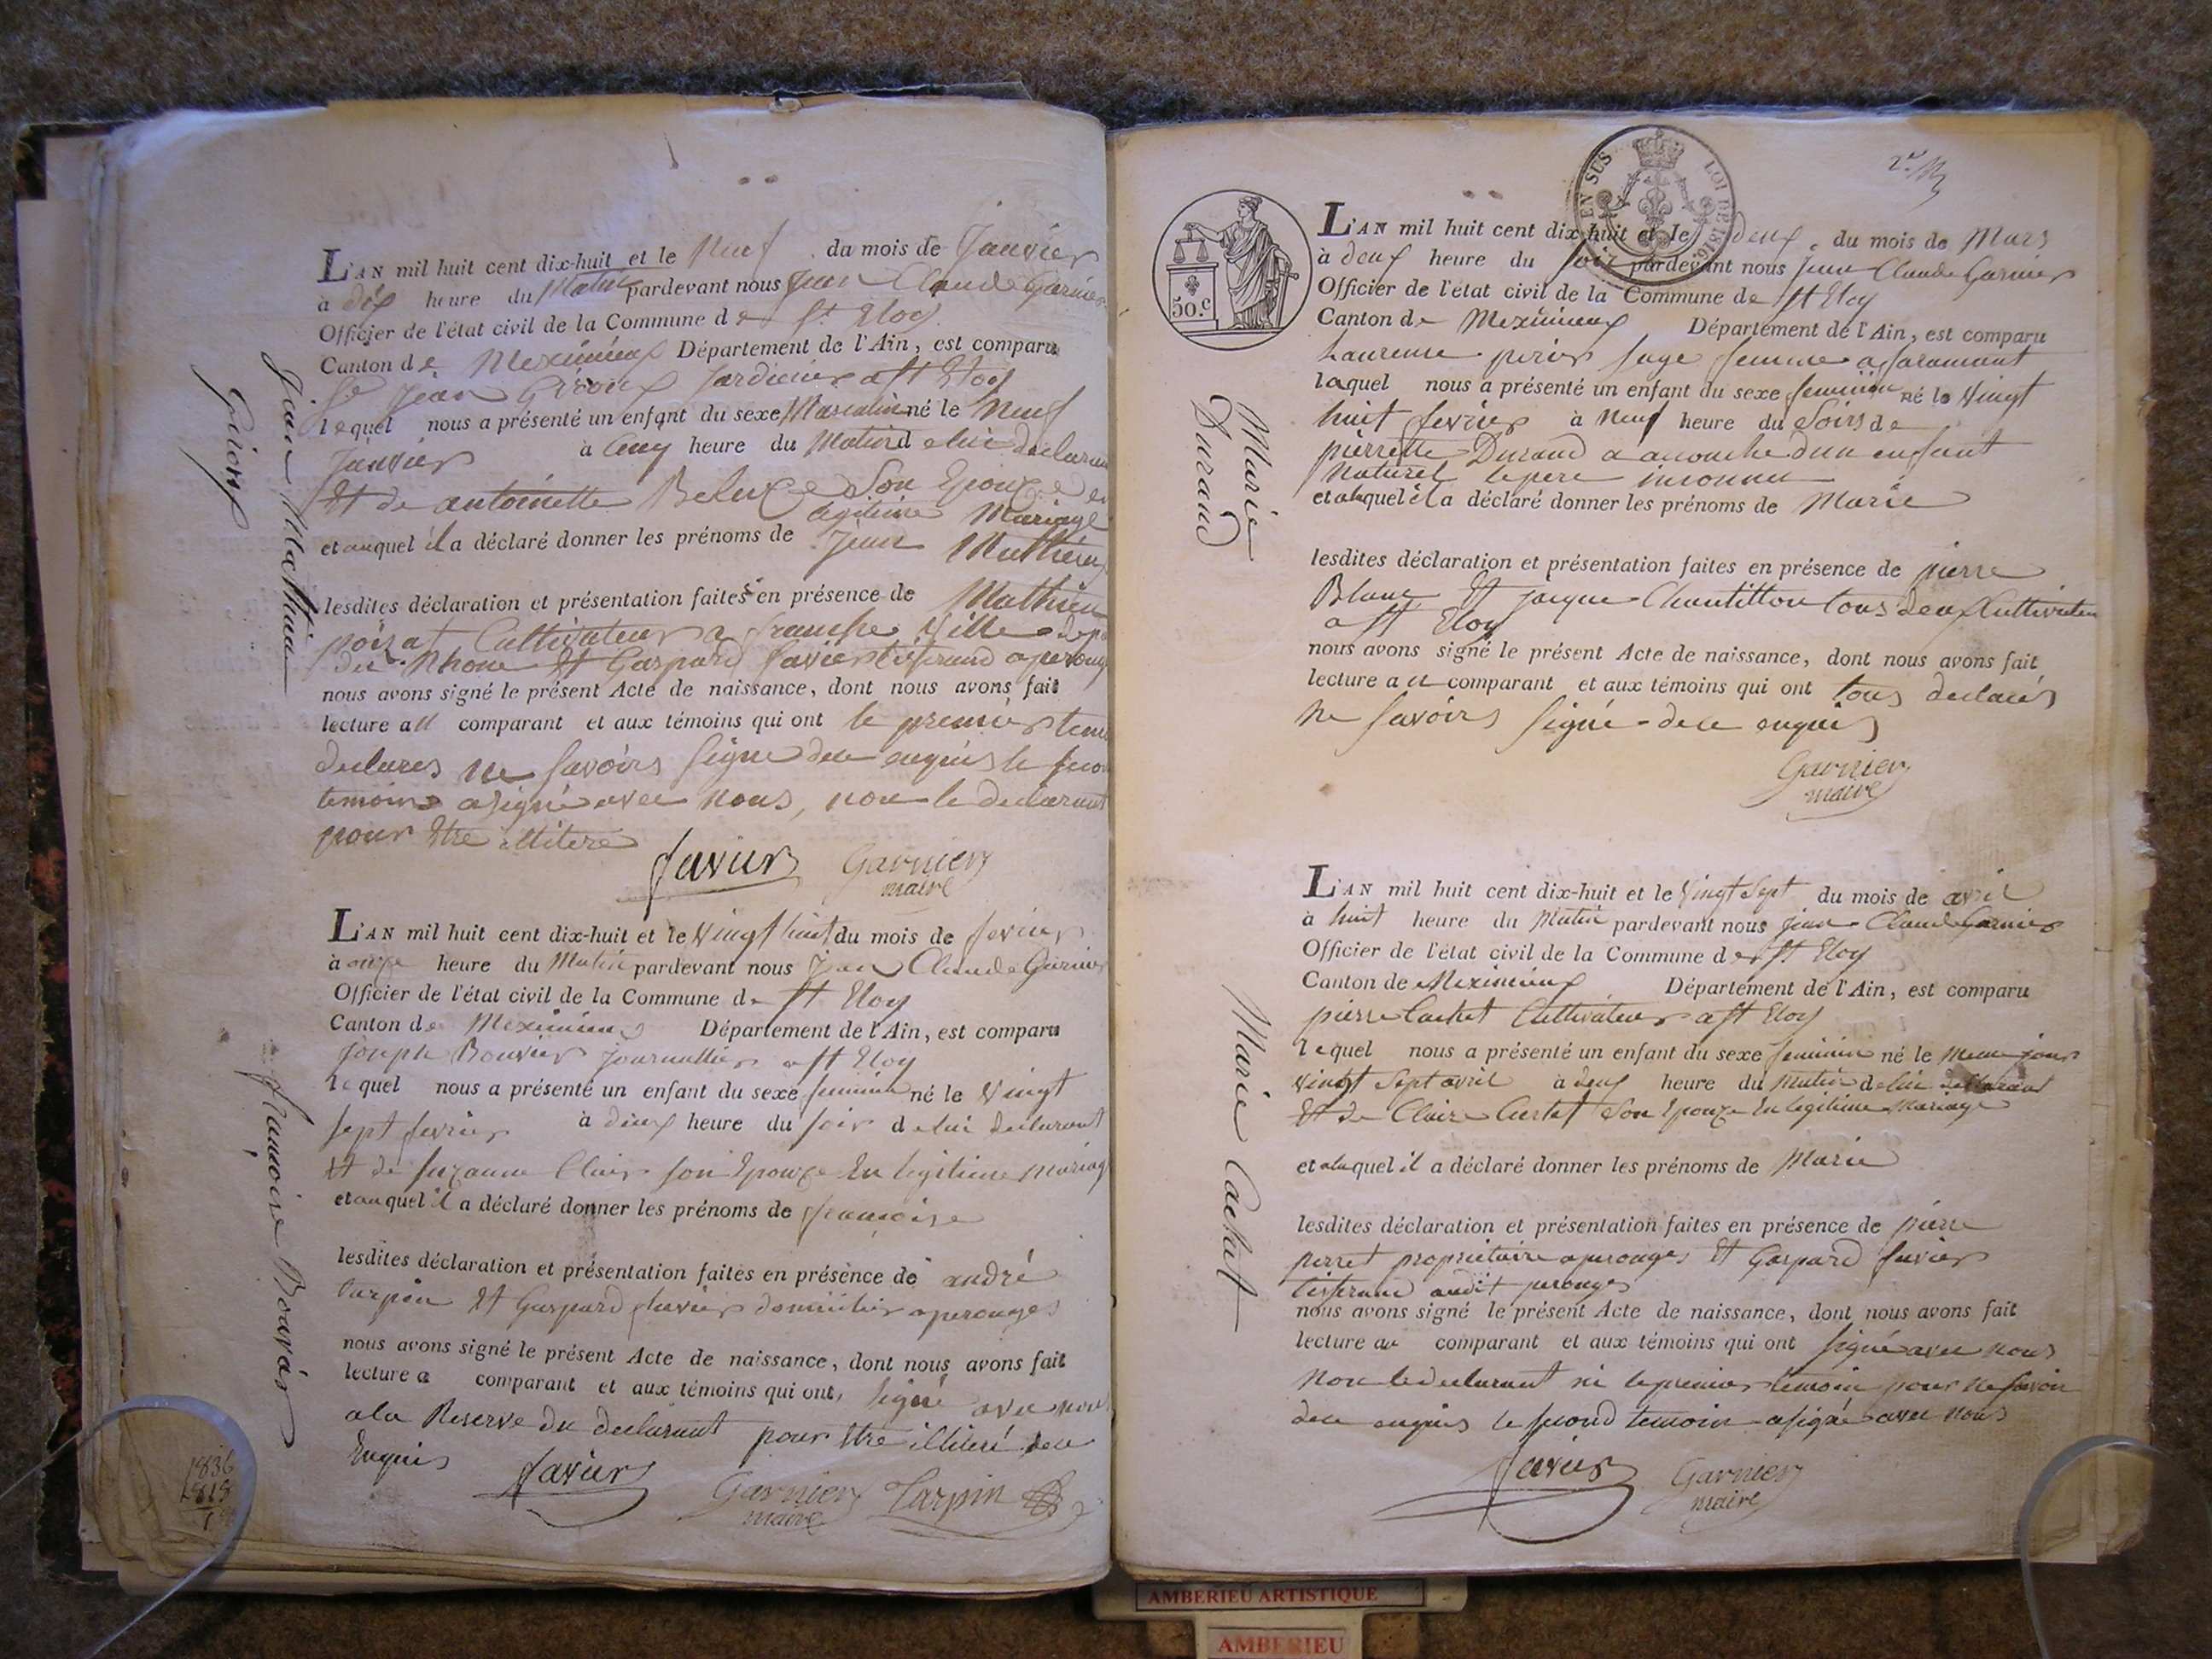 L'AN mil huit cent dix-huit et le neuf du mois de Janvier
à dix heure du Matin pardevant nous Jean Claude Garnier
Officier de l'état civil de la Commune de St Eloy
Canton de Meximieux Département de l'Ain, est comparu
Sr Jean Girouf Jardinier a St Eloy
lequel nous a présenté un enfant du sexe Masculin né le Neuf
Janvier à Cinq heure du Matin de lui declarant
Et de antoinette Son Epouze en
legitime Mariage
et auquel il a déclaré donner les prénoms de Jean Mathieu
lesdites déclaration et présentation faites en présence de Mathieu
poizat Cultivateur a franche Ville dep
du Rhone Et Gaspard favier tisserand a peroug
nous avons signé le présent Acte de naissance, dont nous avons fait
lecture au comparant et aux témoins qui ont le premier temoi
declares ne savoirs signe de ce enquis le secon
temoin a signé avec nous, non le declarant
pour Etre illitere
favier Garnier
maire
Jean Mathieu
L'AN mil huit cent dix-huit et le vingt huit du mois de fevrier
à onze heure du Matin pardevant nous Jean Claude Garnier
Officier de l'état civil de la Commune de St Eloy
Canton de Meximieux Département de l'Ain, est comparu
Joseph Bouvier journallier a St Eloy
lequel nous a présenté un enfant du sexe feminin né le Vingt
sept fevrier à deux heure du soir de lui declarant
Et de suzanne Clair son Epouze En legitime mariag
et auquel il a déclaré donner les prénoms de francoise
lesdites déclaration et présentation faites en présence de andré
tarpin Et Gaspard favier domicilies a perouges
nous avons signé le présent Acte de naissance, dont nous avons fait
lecture a comparant et aux témoins qui ont signé avec nous
a la Reserve du declarant pour Etre illiteré de ce
Enquis favier Garnier Tarpin
maire
francoise Bouvier
1836
1818
EN SUS LOI DE 1816
50.c
L'AN mil huit cent dix-huit et le deux du mois de Mars
à deux heure du soir pardevant nous Jean Claude Garnier
Officier de l'état civil de la Commune de St Eloy
Canton de Meximieux Département de l'Ain, est comparu
Laurence perier sage femme a faramant
laquel nous a présenté un enfant du sexe feminin né le Vingt
huit fevrier à Neuf heure du Soirs de
pierrette Durand a accouche d'un enfant
Naturel le pere inconnu
et alaquel il a déclaré donner les prénoms de Marie
lesdites déclaration et présentation faites en présence de pierre
Blanc Et jacque Chantillon tous deux Cultivateu
a St Eloy
nous avons signé le présent Acte de naissance, dont nous avons fait
lecture a u comparant et aux témoins qui ont tous declarés
ne savoirs signé de ce enquis
Garnier
maire
Marie
Durand
L'AN mil huit cent dix-huit et le Vingt Sept du mois de avril
à huit heure du Matin pardevant nous jean Claude Garnier
Officier de l'état civil de la Commune de St Eloy
Canton de Meximieux Département de l'Ain, est comparu
pierre Cachet Cultivateur a St Eloy
lequel nous a présenté un enfant du sexe feminin né le meme jour
Vingt Sept avril à deux heure du Matin de lui declarant
Et de Claire Son Epouze En legitime Mariage
et alaquel il a déclaré donner les prénoms de Marie
lesdites déclaration et présentation faites en présence de pierre
perret proprietaire a perouges Et Gaspard favier
tisserand audit perouges
nous avons signé le présent Acte de naissance, dont nous avons fait
lecture au comparant et aux témoins qui ont signé avec nous
Non le declarant ni le premier temoin pour ne savoir
de ce enquis le second temoin a signé avec nous
favier Garnier
maire
Marie Cachet
AMBERIEU ARTISTIQUE
AMBERIEU